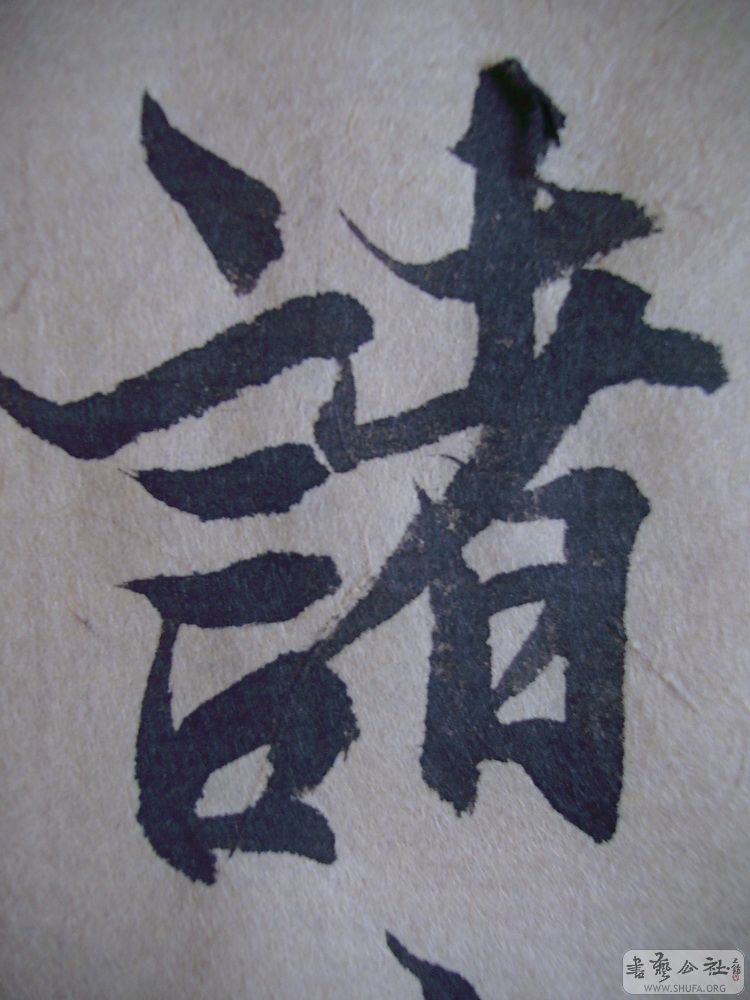 諸
書藝公社
WWW.SHUFA.ORG